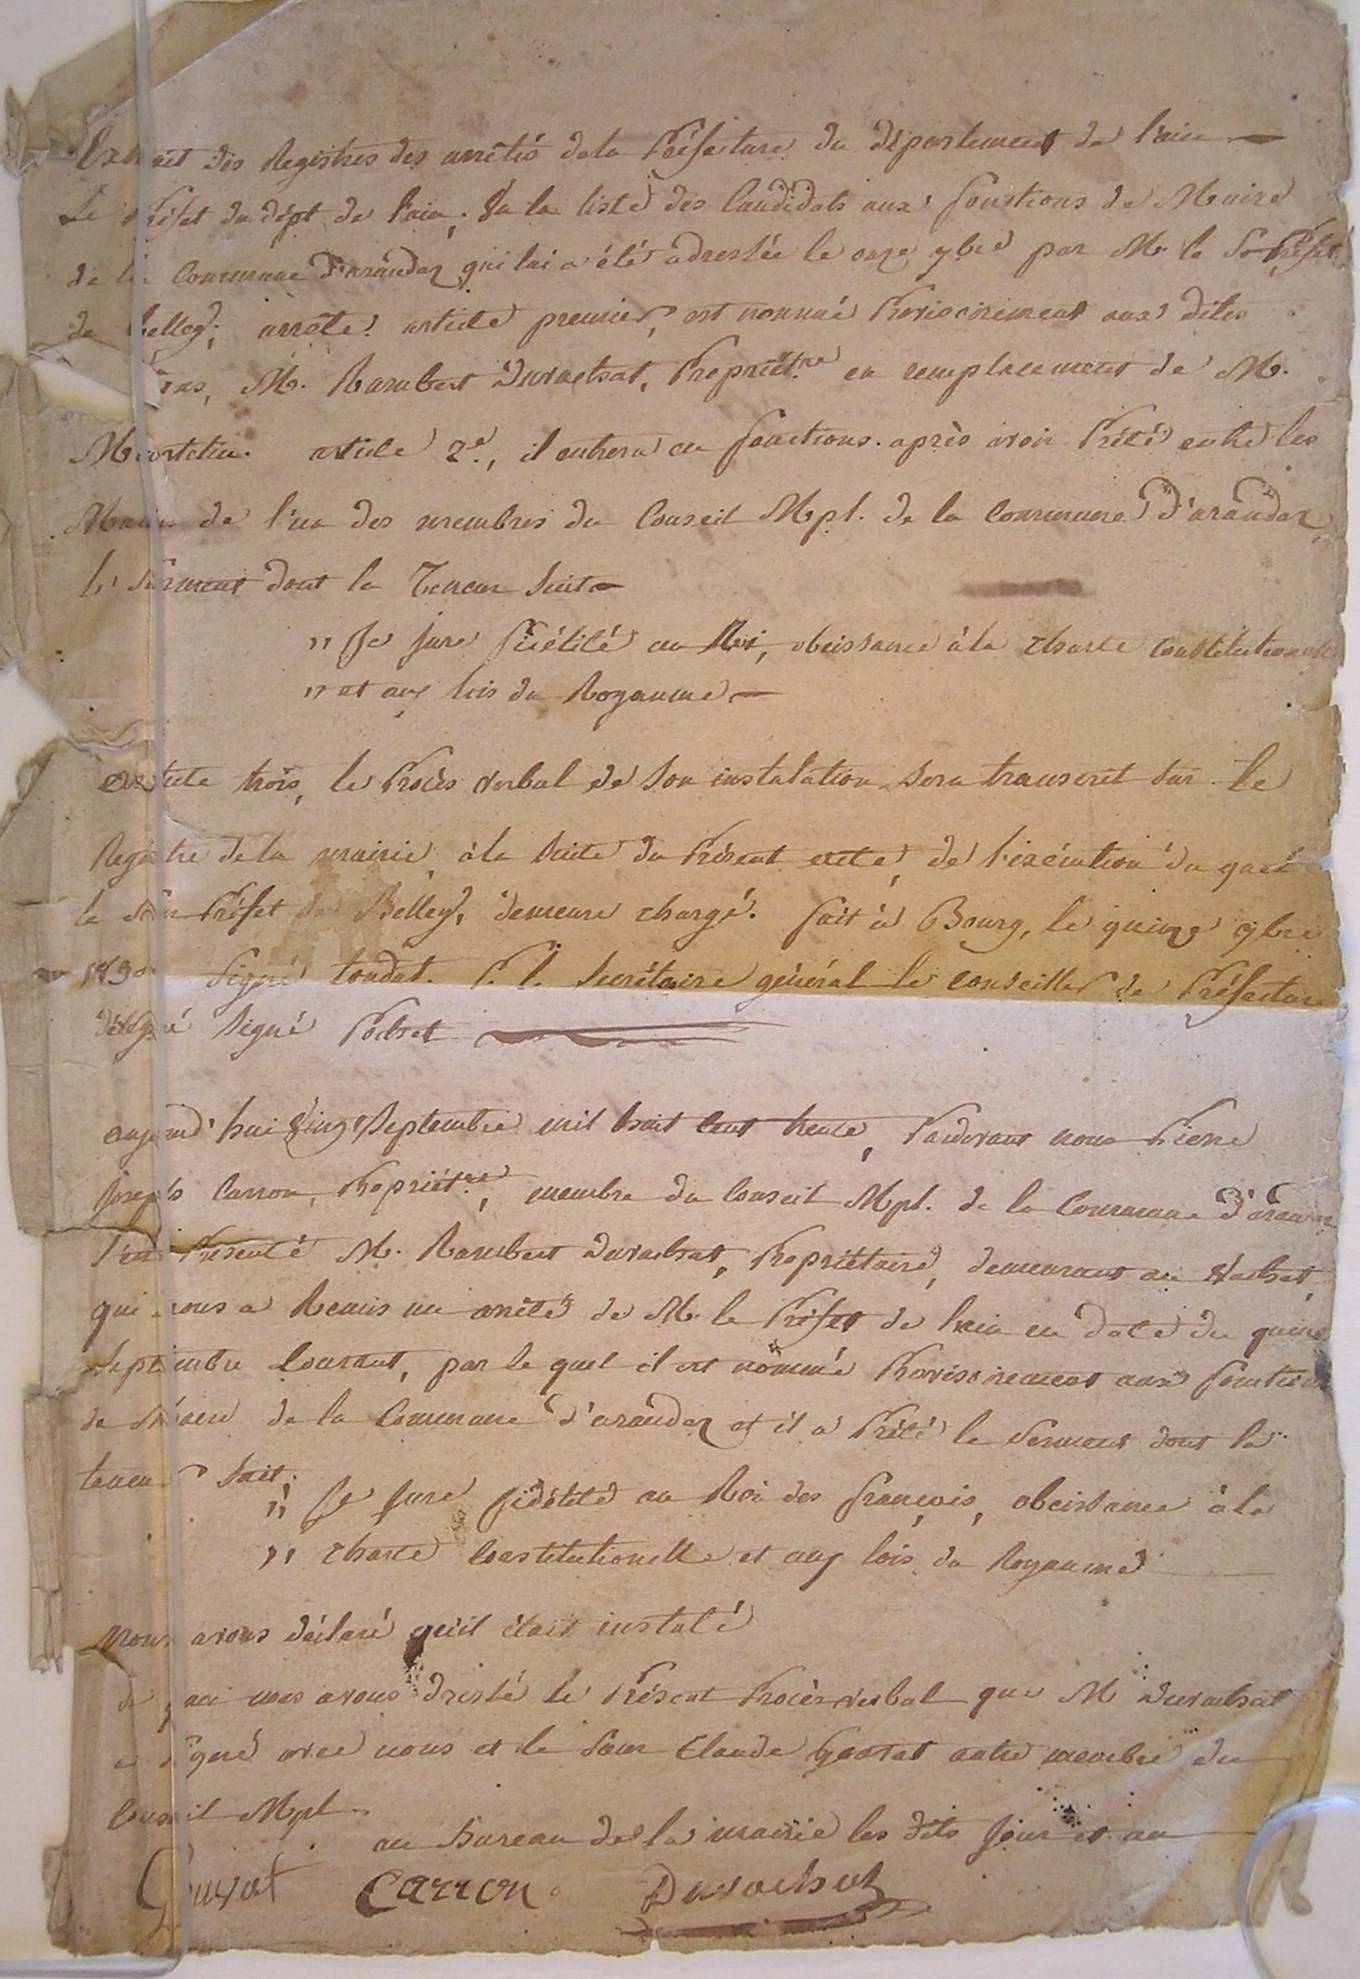 Extrait des Registres des arrêtés de la Préfecture du département de l'ain
Le Préfet du dépt de l'ain, Vu la liste des Candidats aux fonctions de Maire
de la Commune d'arandaz qui lui a été adressée le onze 7bre par Mr. le Sr-Préfet
de Belley; arrête: article premier, est nommé Provisoirement aux dites
M. Rambert Duvachat, Propriét.re en remplacement de M.
article 2e, il entrera en fonctions après avoir Prété entre les
Mains de l'un des membres du Conseil Mpl. de la Commune d'arandaz
le serment dont la Teneur Suit
" Je Jure fidélité au Roi, obeissance à la charte Constitutionelle
" et aux lois du Royaume
article trois, le Procès verbal de Son instalation Sera transcrit Sur le
Registre de la mairie à la Suite du Présent de l'exécution du quel
le Sous Préfet de Belley, demeure chargé. fait à Bourg, le quinze 7bre
1830 Signé P. l. Secrétaire général le conseiller de Préfecture
délégué Signé
aujourd'hui Vingt Septembre mil huit Cent trente, Pardevant nous Pierre
Joseph Carron, Propriét.re, membre du Conseil Mpl. de la Commune d'arandaz
S'est Présenté M. Rambert Duvachat, Propriétaire, demeurant au Vachat,
qui nous a Remis un arrêté de M. le Préfet de l'ain en date du quinze
Septembre Courant, par le quel il est nommé Provisoirement aux fonctions
de Maire de la Commune d'arandaz et il a Prété le Serment dont la
teneur Suit:
" Je Jure fidélité au Roi des français, obeissance à la
" charte Constitutionelle et aux lois du Royaume
Nous avons déclaré qu'il était instalé
de quoi nous avons dressé le Présent Procès verbal que M Duvachat
a Signé avec nous et le Sieur Claude autre membre du
Conseil Mpl.
au bureau de la mairie les dits Jour et an
Carron Duvachat